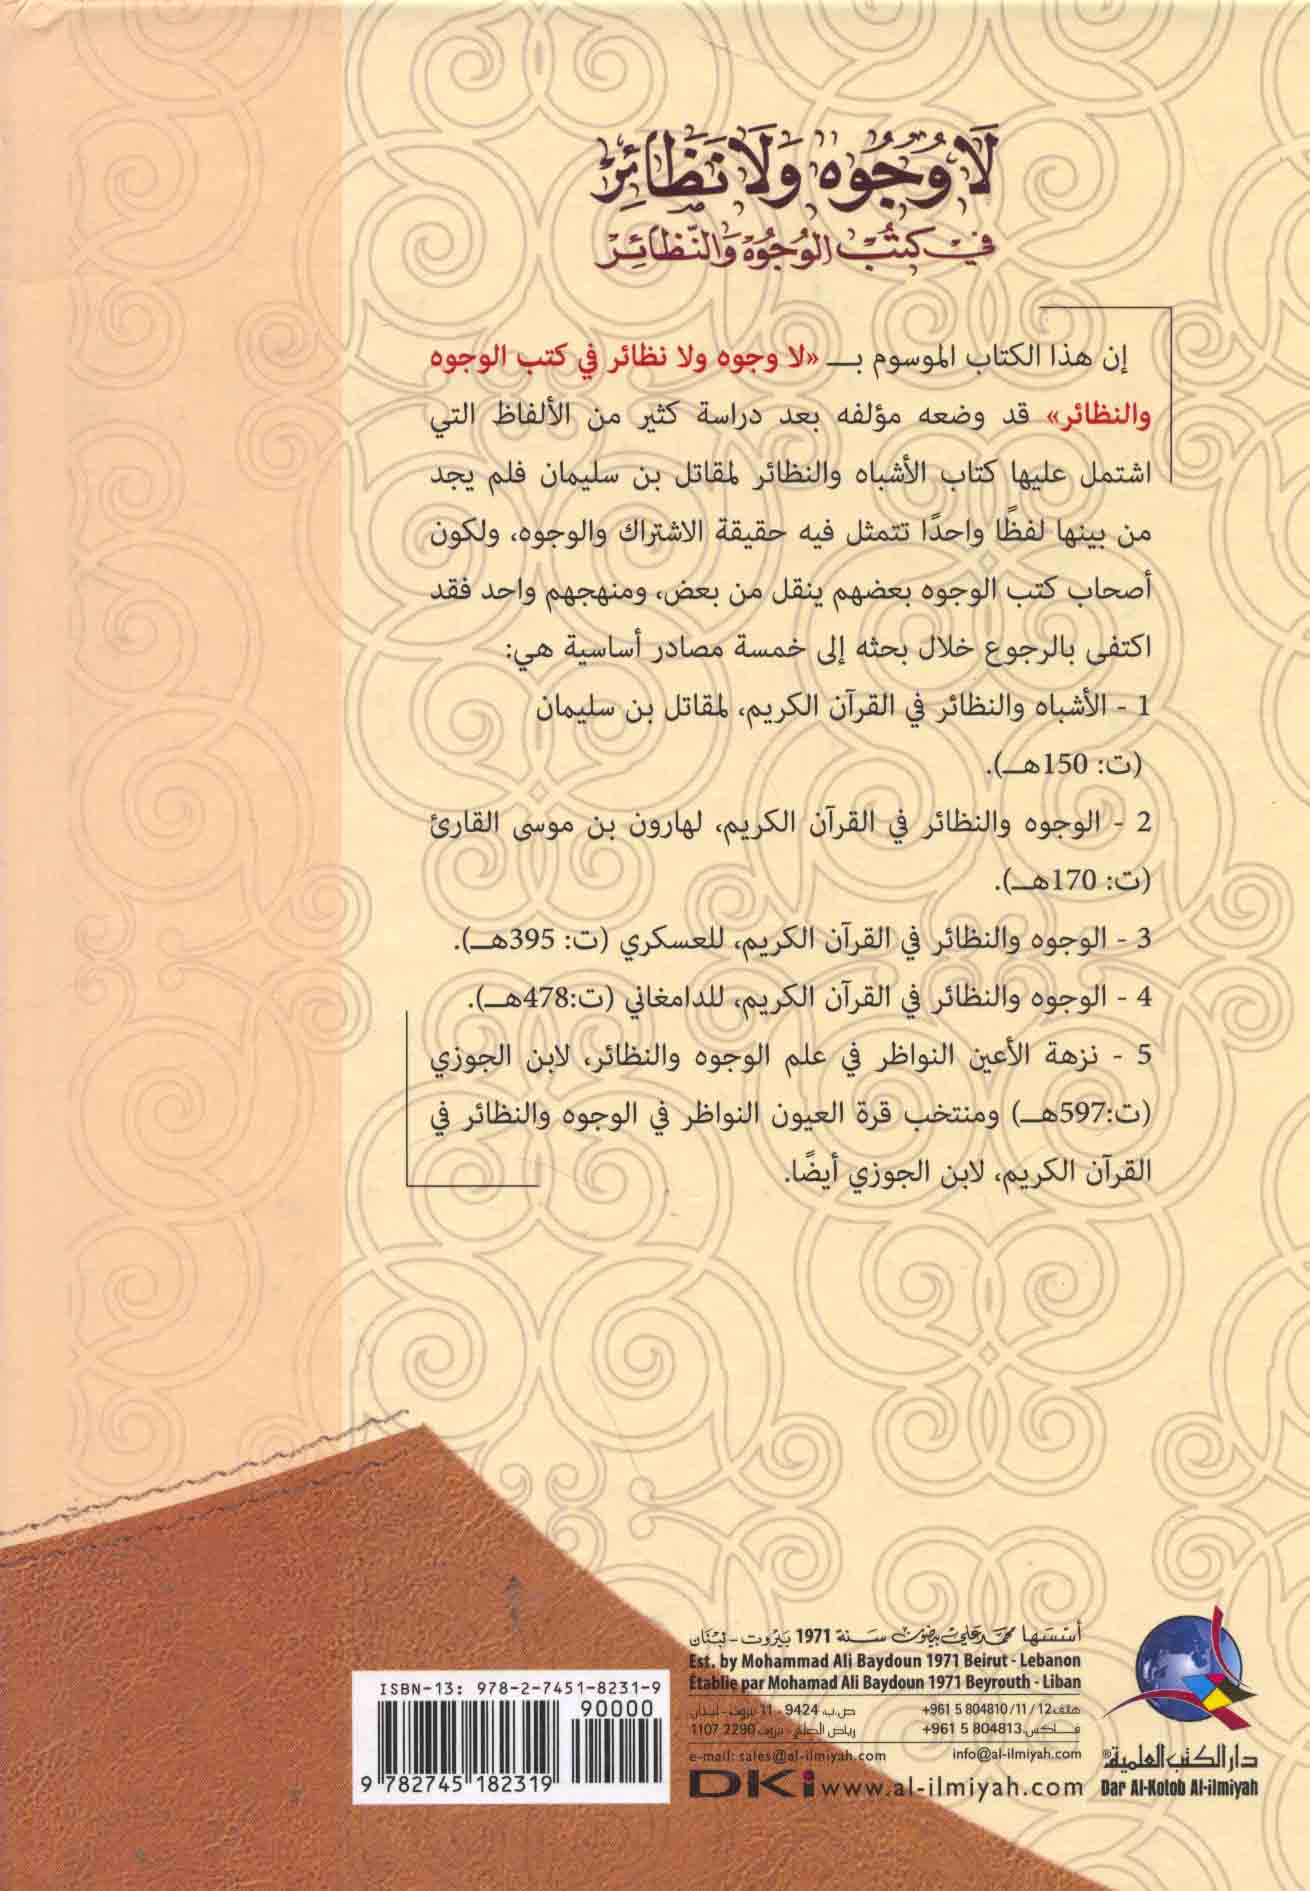 لَا وُجُوه وَلَا نَظَائِر
في كتُب الوُجُوه وَالنّظَائِر
إن هذا الكتاب الموسوم بـــ «لا وجوه ولا نظائر في كتب الوجوه
والنظائر» قد وضعه مؤلفه بعد دراسة كثير من الألفاظ التي
اشتمل عليها كتاب الأشباه والنظائر لمقاتل بن سليمان فلم يجد
من بينها لفظًا واحدًا تتمثل فيه حقيقة الاشتراك والوجوه، ولكون
أصحاب كتب الوجوه بعضهم ينقل من بعض، ومنهجهم واحد فقد
اكتفى بالرجوع خلال بحثه إلى خمسة مصادر أساسية هي:
1 - الأشباه والنظائر في القرآن الكريم، لمقاتل بن سليمان
(ت: 150هــ).
2 - الوجوه والنظائر في القرآن الكريم، لهارون بن موسى القارئ
(ت: 170هــ).
3 - الوجوه والنظائر في القرآن الكريم، للعسكري (ت: 395هــ).
4 - الوجوه والنظائر في القرآن الكريم، للدامغاني (ت:478هــ).
5 - نزهة الأعين النواظر في علم الوجوه والنظائر، لابن الجوزي
(ت:597هــ) ومنتخب قرة العيون النواظر في الوجوه والنظائر في
القرآن الكريم، لابن الجوزي أيضًا.
أسسها محمد علي بيضون سنة 1971 بيروت - لبنان
Est. by Mohammad Ali Baydoun 1971 Beirut - Lebanon
Établie par Mohamad Ali Baydoun 1971 Beyrouth - Liban
هاتف: +961 5 804810/11/12 ص.ب: 9424 - 11 بيروت - لبنان
فاكس: +961 5 804813 رياض الصلح - بيروت 1107 2290
e-mail: sales@al-ilmiyah.com info@al-ilmiyah.com
DKi www.al-ilmiyah.com
دار الكتب العلمية®
Dar Al-Kotob Al-ilmiyah
ISBN-13: 978-2-7451-8231-9
90000
9 782745 182319